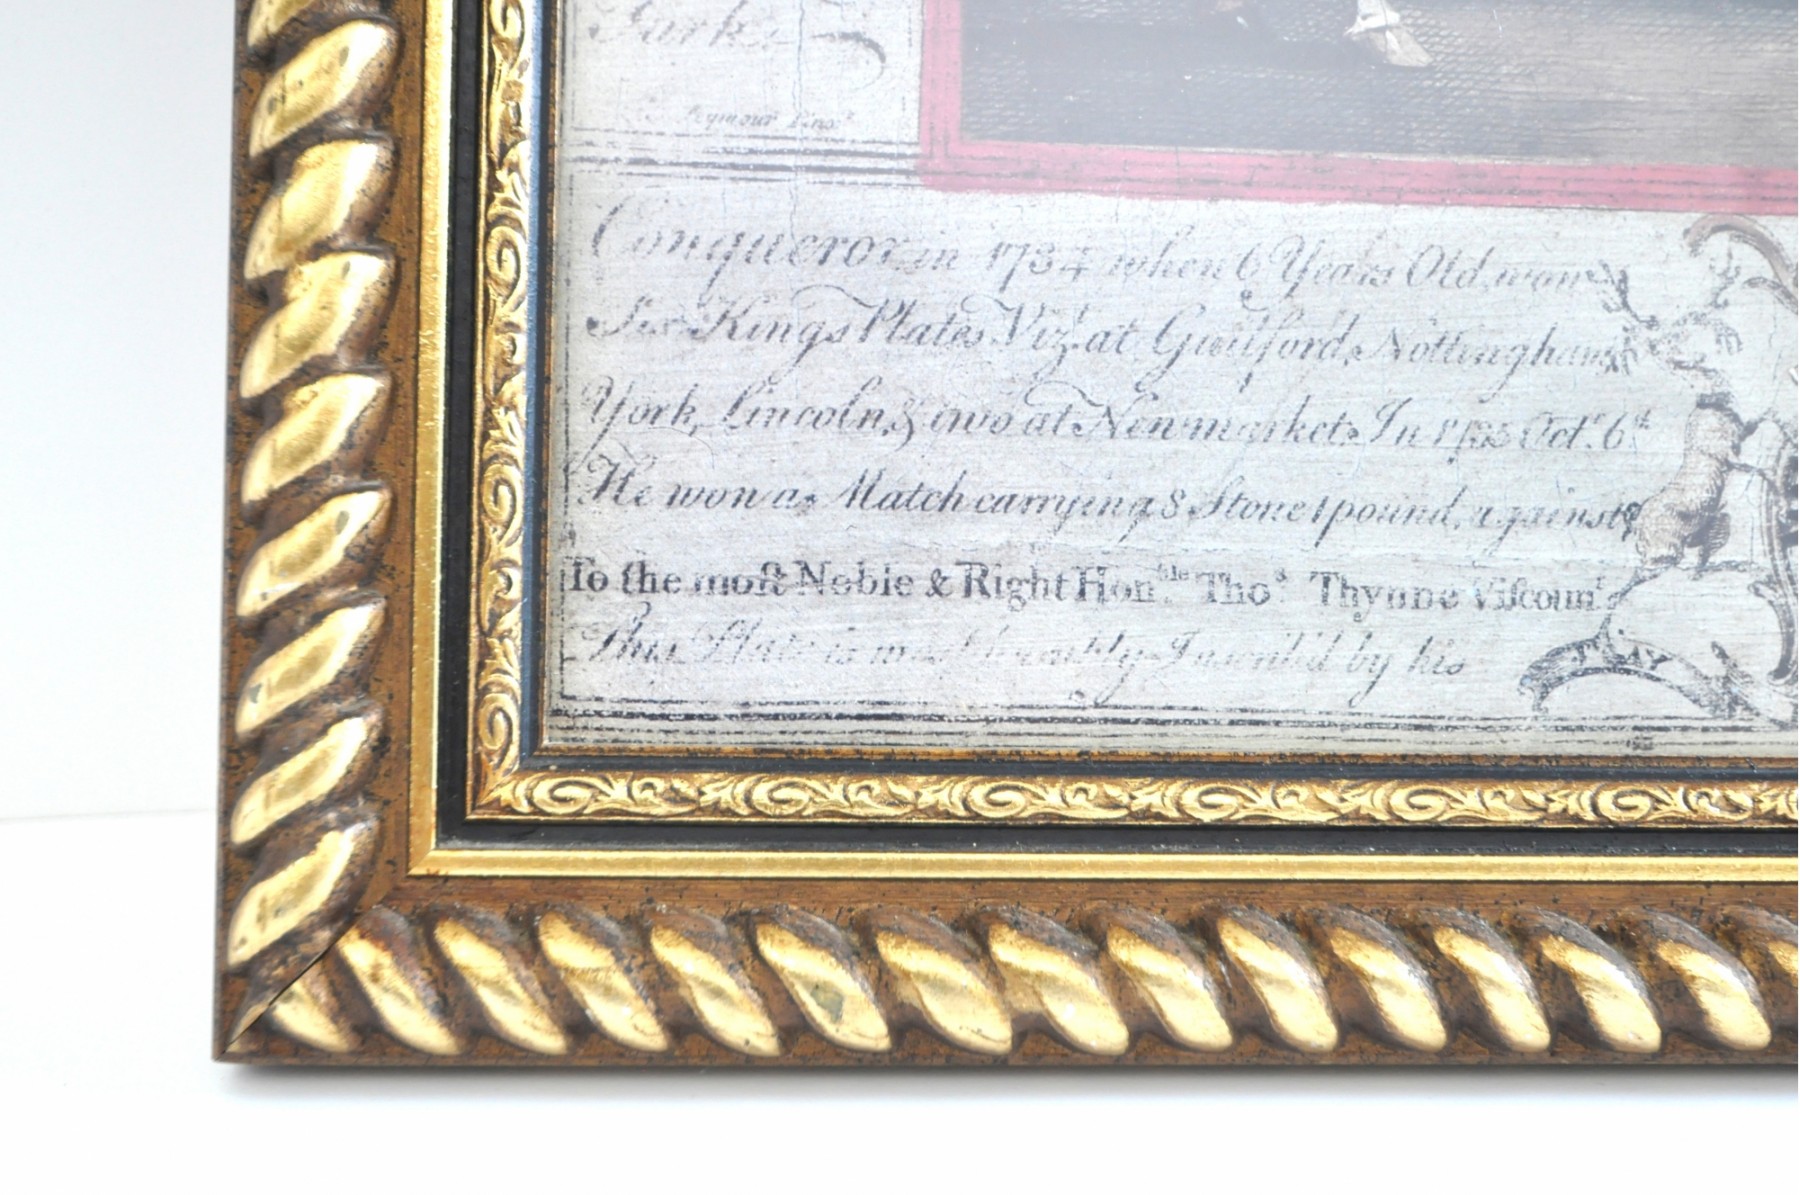 Seymour Pinxt
Conqueror in 1734 when 6 Years Old won
Six Kings Plates Vizt. at Guilford, Nottingham
York, Lincoln, & two at Newmarket, In 1735 Octr. 6th
He won a Match carrying 8 Stone 1 pound, against
To the moſt Noble & Right Honble. Thos. Thynne Viſcount
This Plate is most humbly Inscrib'd by his